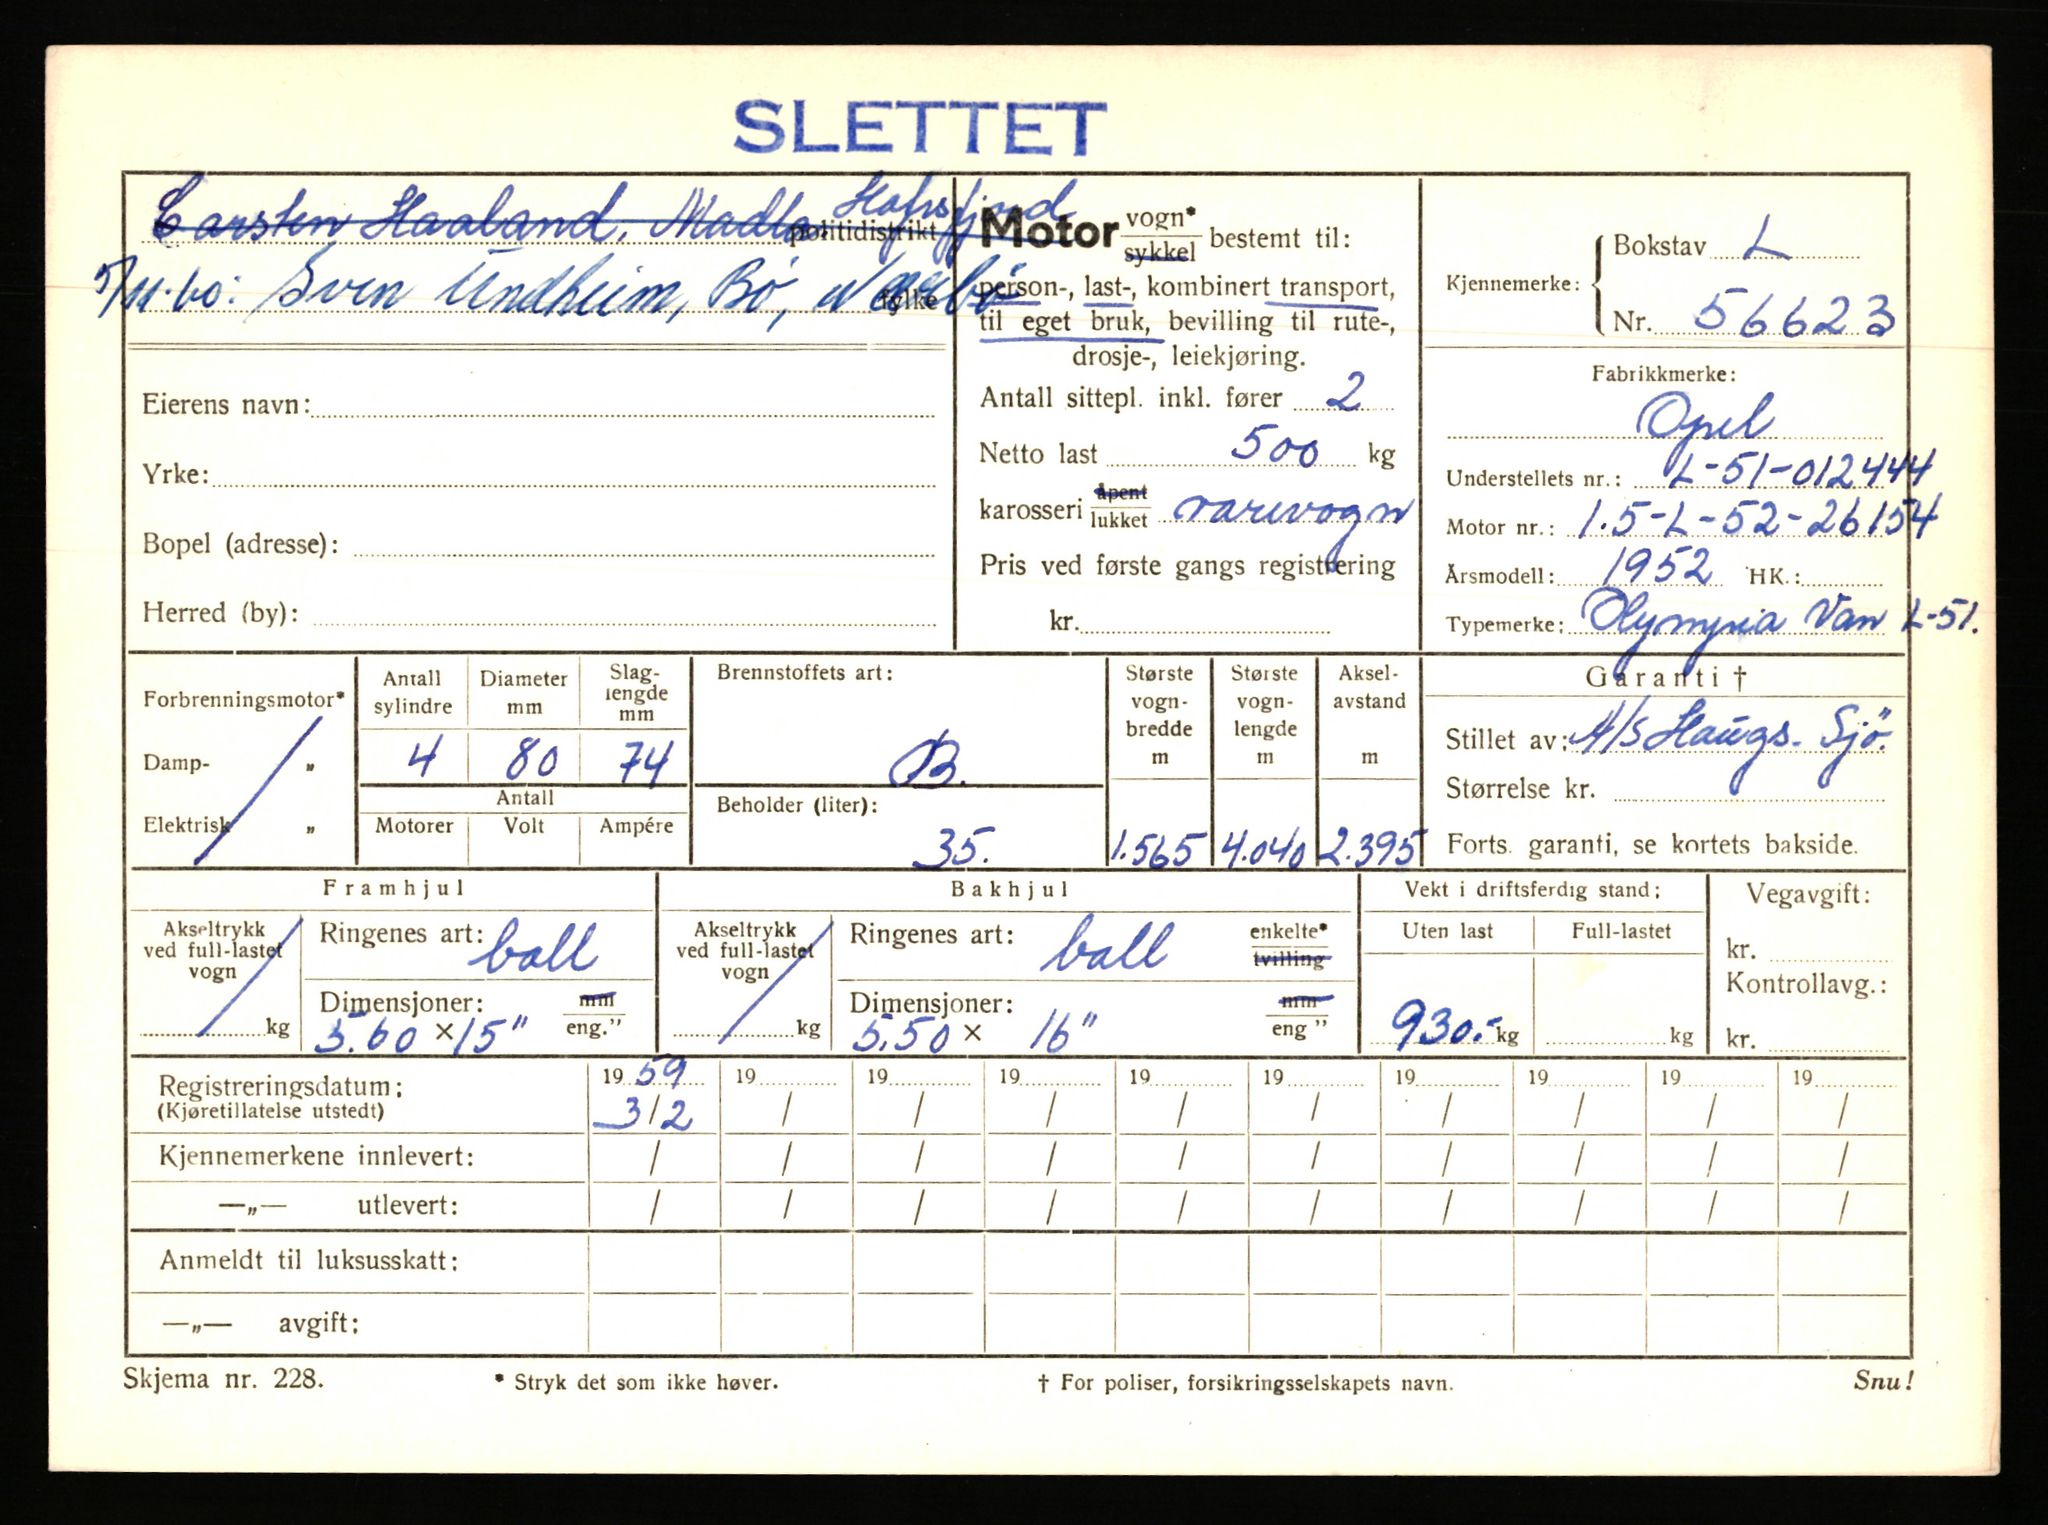 SLETTET
Carsten Haaland, Madla, Hafrsfjord
politidistrikt
5/11-60: Sven Undheim, Bø, Nærbø
fylke
Eierens navn:
Yrke:
Bopel (adresse):
Herred (by):
Motor vogn* sykkel bestemt til:
person-, last-, kombinert transport,
til eget bruk, bevilling til rute-,
drosje-, leiekjøring.
Antall sittepl. inkl. fører 2
Netto last 500 kg
karosseri åpent lukket varevogn
Pris ved første gangs registrering
kr.
Kjennemerke: Bokstav L
Nr. 56623
Fabrikkmerke:
Opel
Understellets nr.: L-51-012444
Motor nr.: 1.5-L-52-26154
Årsmodell: 1952 HK.:
Typemerke: Olympia Van L-51.
Forbrenningsmotor*
Damp- „
Elektrisk „
Antall sylindre
Diameter mm
Slaglengde mm
4 80 74
Antall
Motorer Volt Ampére
Brennstoffets art:
B.
Beholder (liter):
35.
Største vogn-bredde m
1.565
Største vogn-lengde m
4.040
Aksel-avstand m
2.395
Garanti †
Stillet av: A/S Haugs. Sjø.
Størrelse kr.
Forts. garanti, se kortets bakside.
Framhjul
Akseltrykk ved full-lastet vogn
kg
Ringenes art: ball
Dimensjoner: mm eng."
5.60 × 15"
Bakhjul
Akseltrykk ved full-lastet vogn
kg
Ringenes art: ball enkelte* tvilling
Dimensjoner: mm eng "
5.50 × 16"
Vekt i driftsferdig stand;
Uten last Full-lastet
930.- kg kg
Vegavgift:
kr.
Kontrollavg.:
kr.
Registreringsdatum; 19 59 19 19 19 19 19 19 19 19 19
(Kjøretillatelse utstedt) 3/2 / / / / / / / / /
Kjennemerkene innlevert: / / / / / / / / / /
—„— utlevert: / / / / / / / / / /
Anmeldt til luksusskatt;
—„— avgift;
Skjema nr. 228. * Stryk det som ikke høver. † For poliser, forsikringsselskapets navn. Snu!